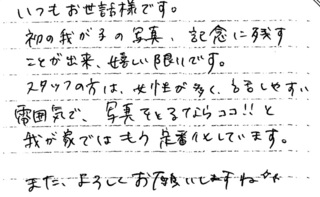 いつもお世話様です。
初の我が子の写真、記念に残す
ことが出来、嬉しい限りです。
スタッフの方は、女性が多く、話しやすい
雰囲気で、写真をとるならココ!!と
我が家ではもう定番化としています。
また、よろしくお願いしますね☆